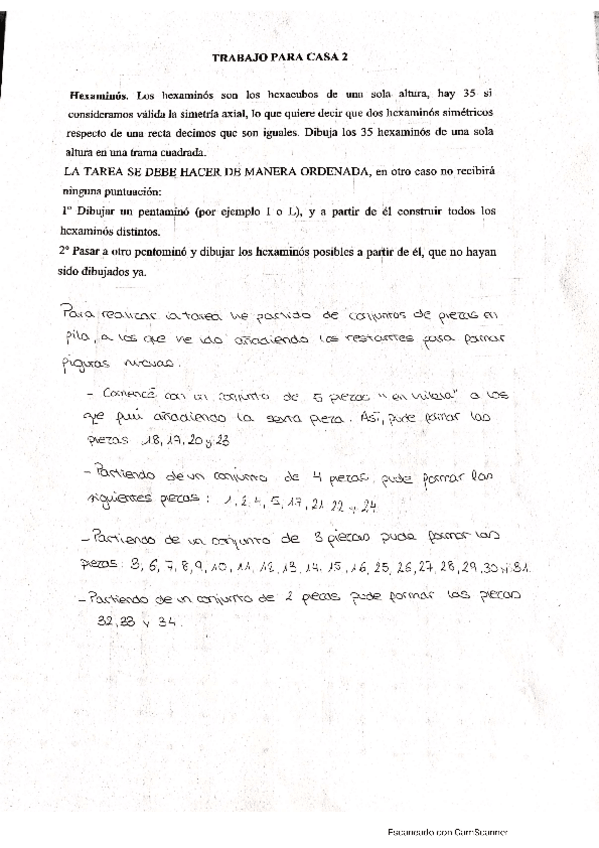 TRABAJO PARA CASA 2
Hexaminós. Los hexaminós son los hexacubos de una sola altura, hay 35 si
consideramos válida la simetría axial, lo que quiere decir que dos hexaminós simétricos
respecto de una recta decimos que son iguales. Dibuja los 35 hexaminós de una sola
altura en una trama cuadrada.
LA TAREA SE DEBE HACER DE MANERA ORDENADA, en otro caso no recibirá
ninguna puntuación:
1º Dibujar un pentaminó (por ejemplo I o L), y a partir de él construir todos los
hexaminós distintos.
2º Pasar a otro pentominó y dibujar los hexaminós posibles a partir de él, que no hayan
sido dibujados ya.
Para realizar la tarea he partido de conjuntos de piezas en
pila, a los que he ido añadiendo las restantes para formar
figuras nuevas.
- Comencé con un conjunto de 5 piezas "en hilera" a las
que fui añadiendo la sexta pieza. Así, pude formar las
piezas 18, 19, 20 y 23
- Partiendo de un conjunto de 4 piezas pude formar las
siguientes piezas: 1, 2, 4, 5, 17, 21 22 y 24
- Partiendo de un conjunto de 3 piezas pude formar las
piezas: 3, 6, 7, 8, 9, 10, 11, 12, 13, 14, 15, 16, 25, 26, 27, 28, 29, 30 y 31.
- Partiendo de un conjunto de 2 piezas pude formar las piezas
32, 33 y 34.
Escaneado con CamScanner